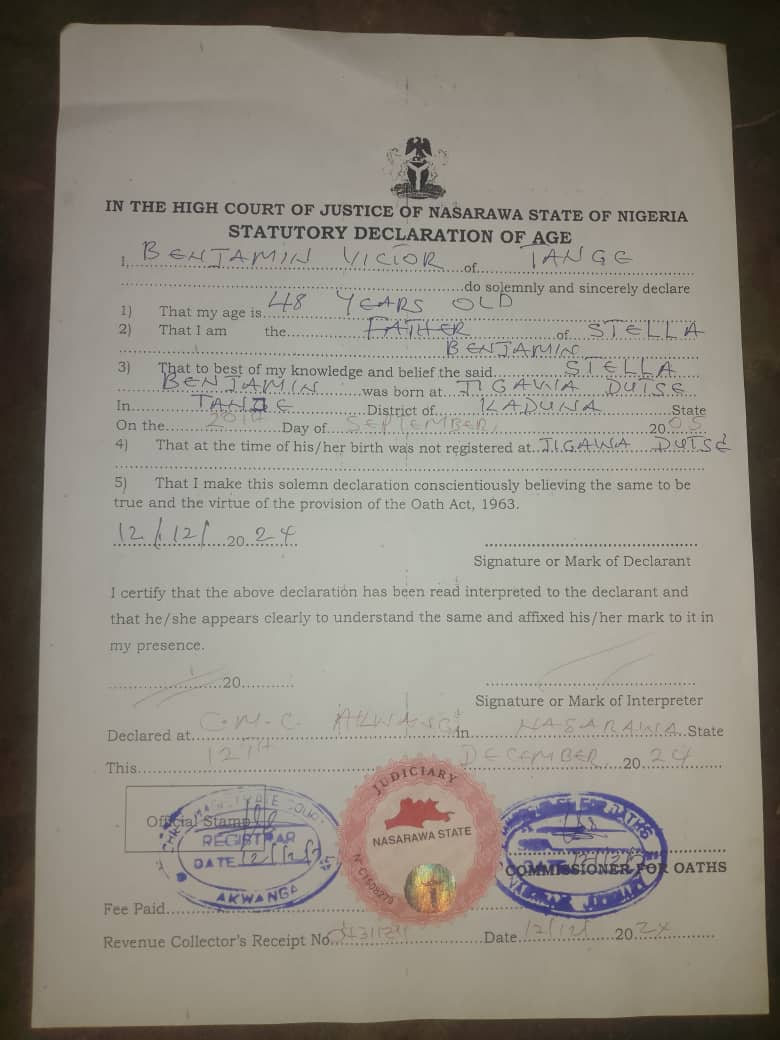 IN THE HIGH COURT OF JUSTICE OF NASARAWA STATE OF NIGERIA
STATUTORY DECLARATION OF AGE
I, BENJAMIN VICTOR of TANGE
do solemnly and sincerely declare
1) That my age is 48 YEARS OLD
2) That I am the FATHER of STELLA
BENJAMIN
3) That to best of my knowledge and belief the said STELLA
BENJAMIN was born at JIGAWA DUTSE
In TANGE District of KADUNA State
On the Day of SEPTEMBER, 2005
4) That at the time of his/her birth was not registered at JIGAWA DUTSE
5) That I make this solemn declaration conscientiously believing the same to be
true and the virtue of the provision of the Oath Act, 1963.
12/12/ 2024
Signature or Mark of Declarant
I certify that the above declaration has been read interpreted to the declarant and
that he/she appears clearly to understand the same and affixed his/her mark to it in
my presence.
20
Signature or Mark of Interpreter
Declared at C.M.C. AKWANGA in NASARAWA State
This 12TH DECEMBER, 2024
JUDICIARY
NASARAWA STATE
Official Stamp
REGISTRAR
DATE
AKWANGA
DATE
COMMISSIONER FOR OATHS
Fee Paid
Revenue Collector's Receipt No Date 12/12/ 2024